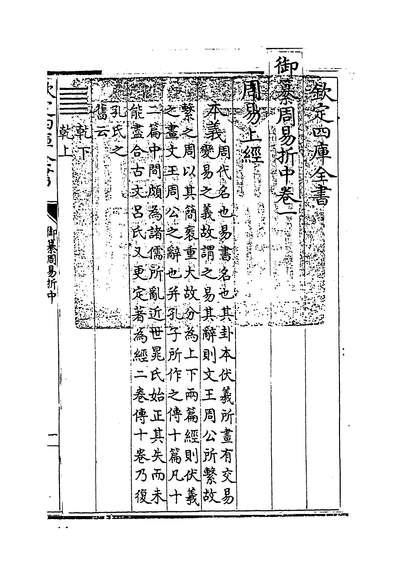 欽定四庫全書
御纂周易折中卷一
周易上經
本義周代名也易書名也其卦本伏羲所畫有交易
變易之義故謂之易其辭則文王周公所繫故
繫之周以其簡袠重大故分為上下兩篇經則伏羲
之畫文王周公之辭也并孔子所作之傳十篇凡十
二篇中間頗為諸儒所亂近世晁氏始正其失而未
能盡合古文呂氏又更定著為經二卷傳十卷乃復
孔氏之
舊云
乾下
乾上
御纂周易折中
一